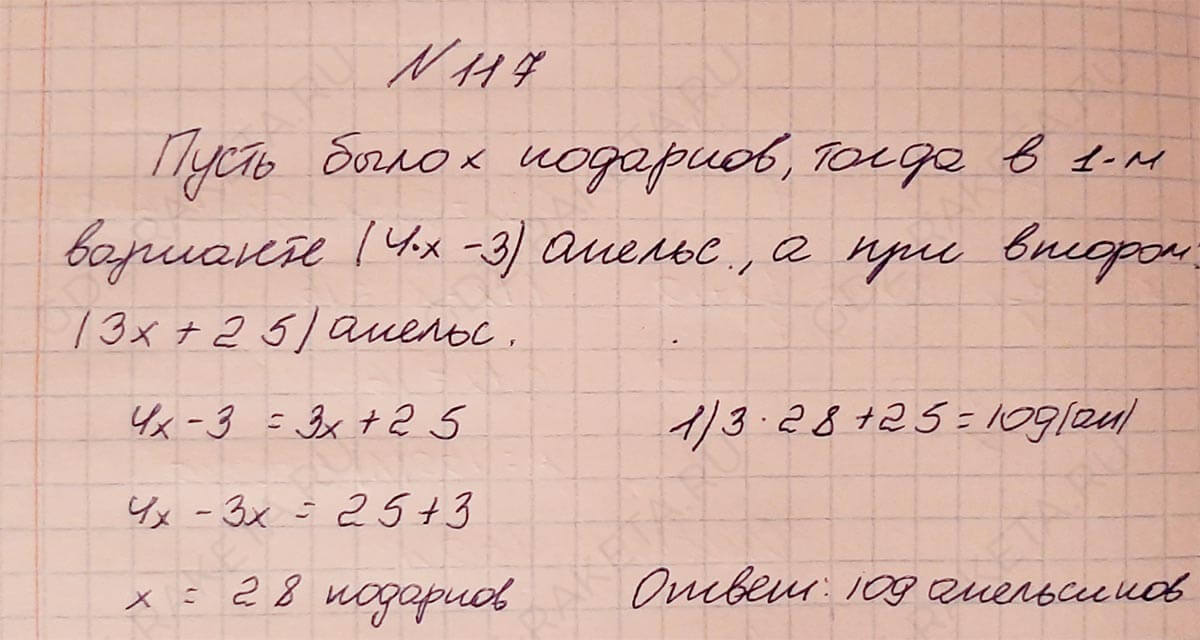 N 117
Пусть было x подарков, тогда в 1-м
варианте (4·x - 3) апельс., а при втором:
(3x + 25) апельс.
4x - 3 = 3x + 25
1) 3 · 28 + 25 = 109 (ап)
4x - 3x = 25 + 3
x = 28 подарков
Ответ: 109 апельсинов